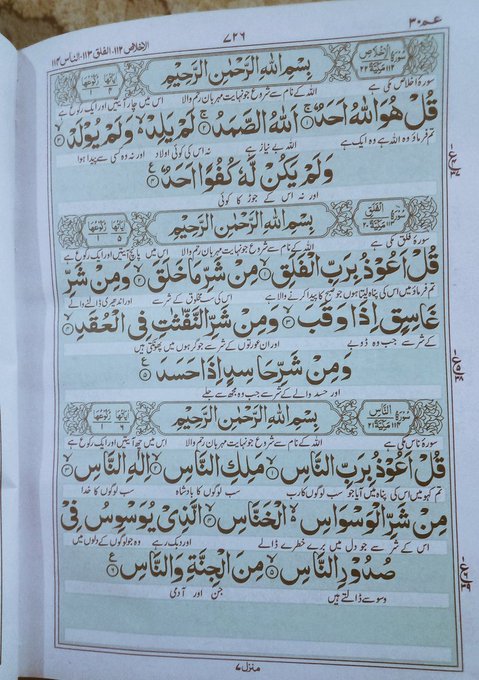 عمّ ۳۰ ۷۲۶ الاخلاص ۱۱۲، الفلق ۱۱۳، الناس ۱۱۴
سورة الاخلاص مكية بِسْمِ اللهِ الرَّحْمٰنِ الرَّحِيْمِ اٰياتها ۴ ركوعها ۱
سورۂ اخلاص مکی ہے اللہ کے نام سے شروع جو نہایت مہربان رحم والا اس میں چار آیتیں اور ایک رکوع ہے
قُلْ هُوَ اللهُ اَحَدٌ ۱ اَللهُ الصَّمَدُ ۲ لَمْ يَلِدْ وَلَمْ يُوْلَدْ ۳
تم فرماؤ وہ اللہ ہے وہ ایک ہے اللہ بے نیاز ہے نہ اس کی کوئی اولاد اور نہ وہ کسی سے پیدا ہوا
وَلَمْ يَكُنْ لَّهٗ كُفُوًا اَحَدٌ ۴
اور نہ اس کے جوڑ کا کوئی
سورة الفلق مكية بِسْمِ اللهِ الرَّحْمٰنِ الرَّحِيْمِ اٰياتها ۵ ركوعها ۱
سورۂ فلق مکی ہے اللہ کے نام سے شروع جو نہایت مہربان رحم والا اس میں پانچ آیتیں اور ایک رکوع ہے
قُلْ اَعُوْذُ بِرَبِّ الْفَلَقِ ۱ مِنْ شَرِّ مَا خَلَقَ ۲ وَمِنْ شَرِّ
تم فرماؤ میں اس کی پناہ لیتا ہوں جو صبح کا پیدا کرنے والا ہے اس کی سب مخلوق کے شر سے اور اندھیری ڈالنے والے
غَاسِقٍ اِذَا وَقَبَ ۳ وَمِنْ شَرِّ النَّفّٰثٰتِ فِى الْعُقَدِ ۴
کے شر سے جب وہ ڈوبے اور ان عورتوں کے شر سے جو گرہوں میں پھونکتی ہیں
وَمِنْ شَرِّ حَاسِدٍ اِذَا حَسَدَ ۵
اور حسد والے کے شر سے جب وہ مجھ سے جلے
سورة الناس مكية بِسْمِ اللهِ الرَّحْمٰنِ الرَّحِيْمِ اٰياتها ۶ ركوعها ۱
سورۂ ناس مکی ہے اللہ کے نام سے شروع جو نہایت مہربان رحم والا اس میں چھ آیتیں اور ایک رکوع ہے
قُلْ اَعُوْذُ بِرَبِّ النَّاسِ ۱ مَلِكِ النَّاسِ ۲ اِلٰهِ النَّاسِ ۳
تم کہو میں اس کی پناہ میں آیا جو سب لوگوں کا رب سب لوگوں کا بادشاہ سب لوگوں کا خدا
مِنْ شَرِّ الْوَسْوَاسِ الْخَنَّاسِ ۴ الَّذِىْ يُوَسْوِسُ فِىْ
اس کے شر سے جو دل میں برے خطرے ڈالے اور دبک رہے وہ جو لوگوں کے دلوں میں
صُدُوْرِ النَّاسِ ۵ مِنَ الْجِنَّةِ وَالنَّاسِ ۶
وسوسے ڈالتے ہیں جن اور آدمی
منزل ۷